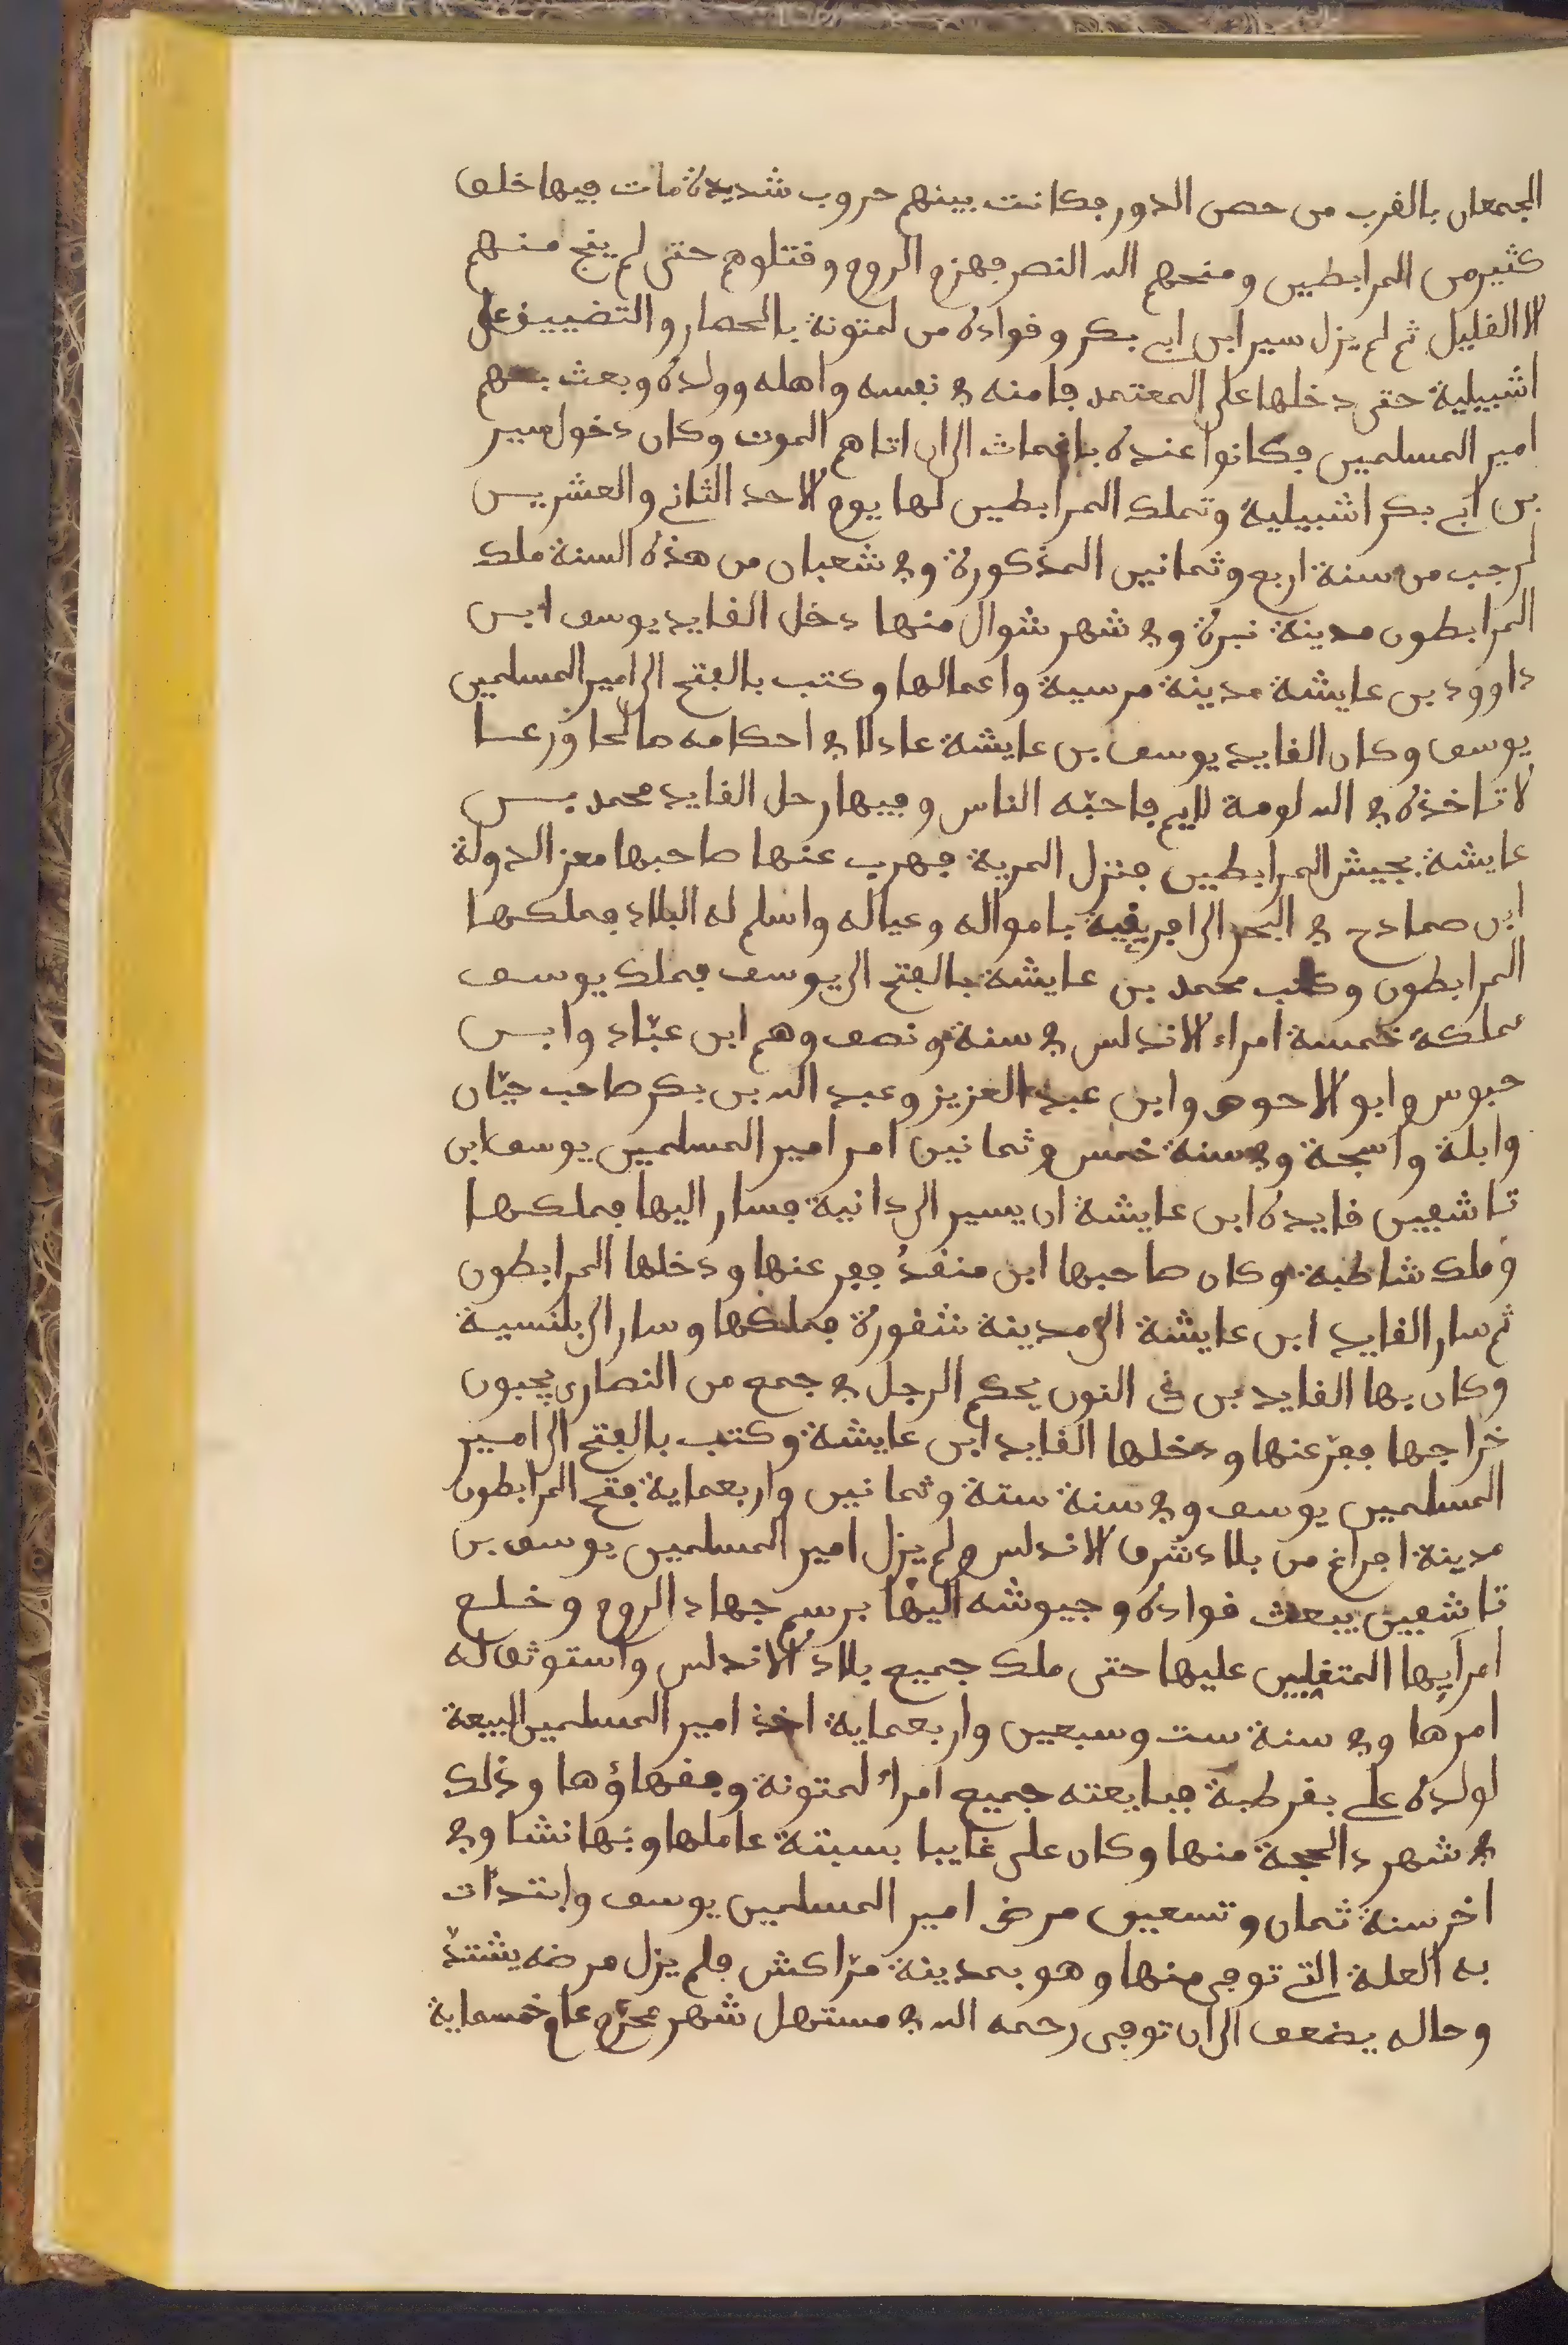 الجمعان بالقرب من حصن الدور فكانت بينهم حروب شديدة مات فيها خلق
كثير من المرابطين ومنحهم الله النصر فهزم الروم وقتلوهم حتى لم ينج منهم
الا القليل ثم لم يزل سير ابن ابي بكر وقواده من لمتونة بالحصار والتضييق على
اشبيلية حتى دخلها على المعتمد فامنه في نفسه واهله وولده وبعث بهم
امير المسلمين فكانوا عنده باغمات الى ان اتاهم الموت وكان دخول سير
بن ابي بكر اشبيلية وتملك المرابطين لها يوم الاحد الثاني والعشرين
لرجب من سنة اربع وثمانين المذكورة وفي شعبان من هذه السنة ملك
المرابطون مدينة نبرة وفي شهر شوال منها دخل القايد يوسف ابن
داوود بن عايشة مدينة مرسية واعمالها وكتب بالفتح الى امير المسلمين
يوسف وكان القايد يوسف بن عايشة عادلا في احكامه صالحا ورعا
لا تاخذه في الله لومة لايم فاحبّه الناس وفيها رحل القايد محمد بن
عايشة بجيش المرابطين فنزل المرية فهرب عنها صاحبها معز الدولة
ابن صمادح في البحر الى افريقية بامواله وعياله واسلم له البلاد فملكها
المرابطون وكتب محمد بن عايشة بالفتح الى يوسف فملك يوسف
مملكة خمسة امراء الاندلس في سنة ونصف وهم ابن عبّاد وابن
حبوس وابو الاحوص وابن عبد العزيز وعبد الله بن بكر صاحب جيّان
وابلة واسجة وفي سنة خمس وثمانين امر امير المسلمين يوسف ابن
تاشفين قايده ابن عايشة ان يسير الى دانية فسار اليها فملكها
وملك شاطبة وكان صاحبها ابن منقد ففر عنها ودخلها المرابطون
ثم سار القايد ابن عايشة الى مدينة شقورة فملكها وسار الى بلنسية
وكان بها القايد بن ذى النون يحكم الرجل في جمع من النصارى يجبون
خراجها ففرّ عنها ودخلها القايد ابن عايشة وكتب بالفتح الى امير
المسلمين يوسف وفي سنة ستة وثمانين واربعماية فتح المرابطون
مدينة افراغ من بلاد شرق الاندلس ولم يزل امير المسلمين يوسف بن
تاشفين يبعث قواده وجيوشه اليها برسم جهاد الروم وخلع
امرايها المتغلبين عليها حتى ملك جميع بلاد الاندلس واستوثق له
امرها وفي سنة ست وسبعين واربعماية اخذ امير المسلمين البيعة
لولده على بقرطبة فبايعته جميع امراء لمتونة وفقهاؤها وذلك
في شهر ذ الحجة منها وكان على غايبا بسبتة عاملها وبها نشا وفي
اخر سنة ثمان وتسعين مرض امير المسلمين يوسف وابتدات
به العلة التي توفى منها وهو بمدينة مرّاكش فلم يزل مرضه يشتدّ
وحاله يضعف الى ان توفى رحمه الله في مستهل شهر محرّم عام خمسماية